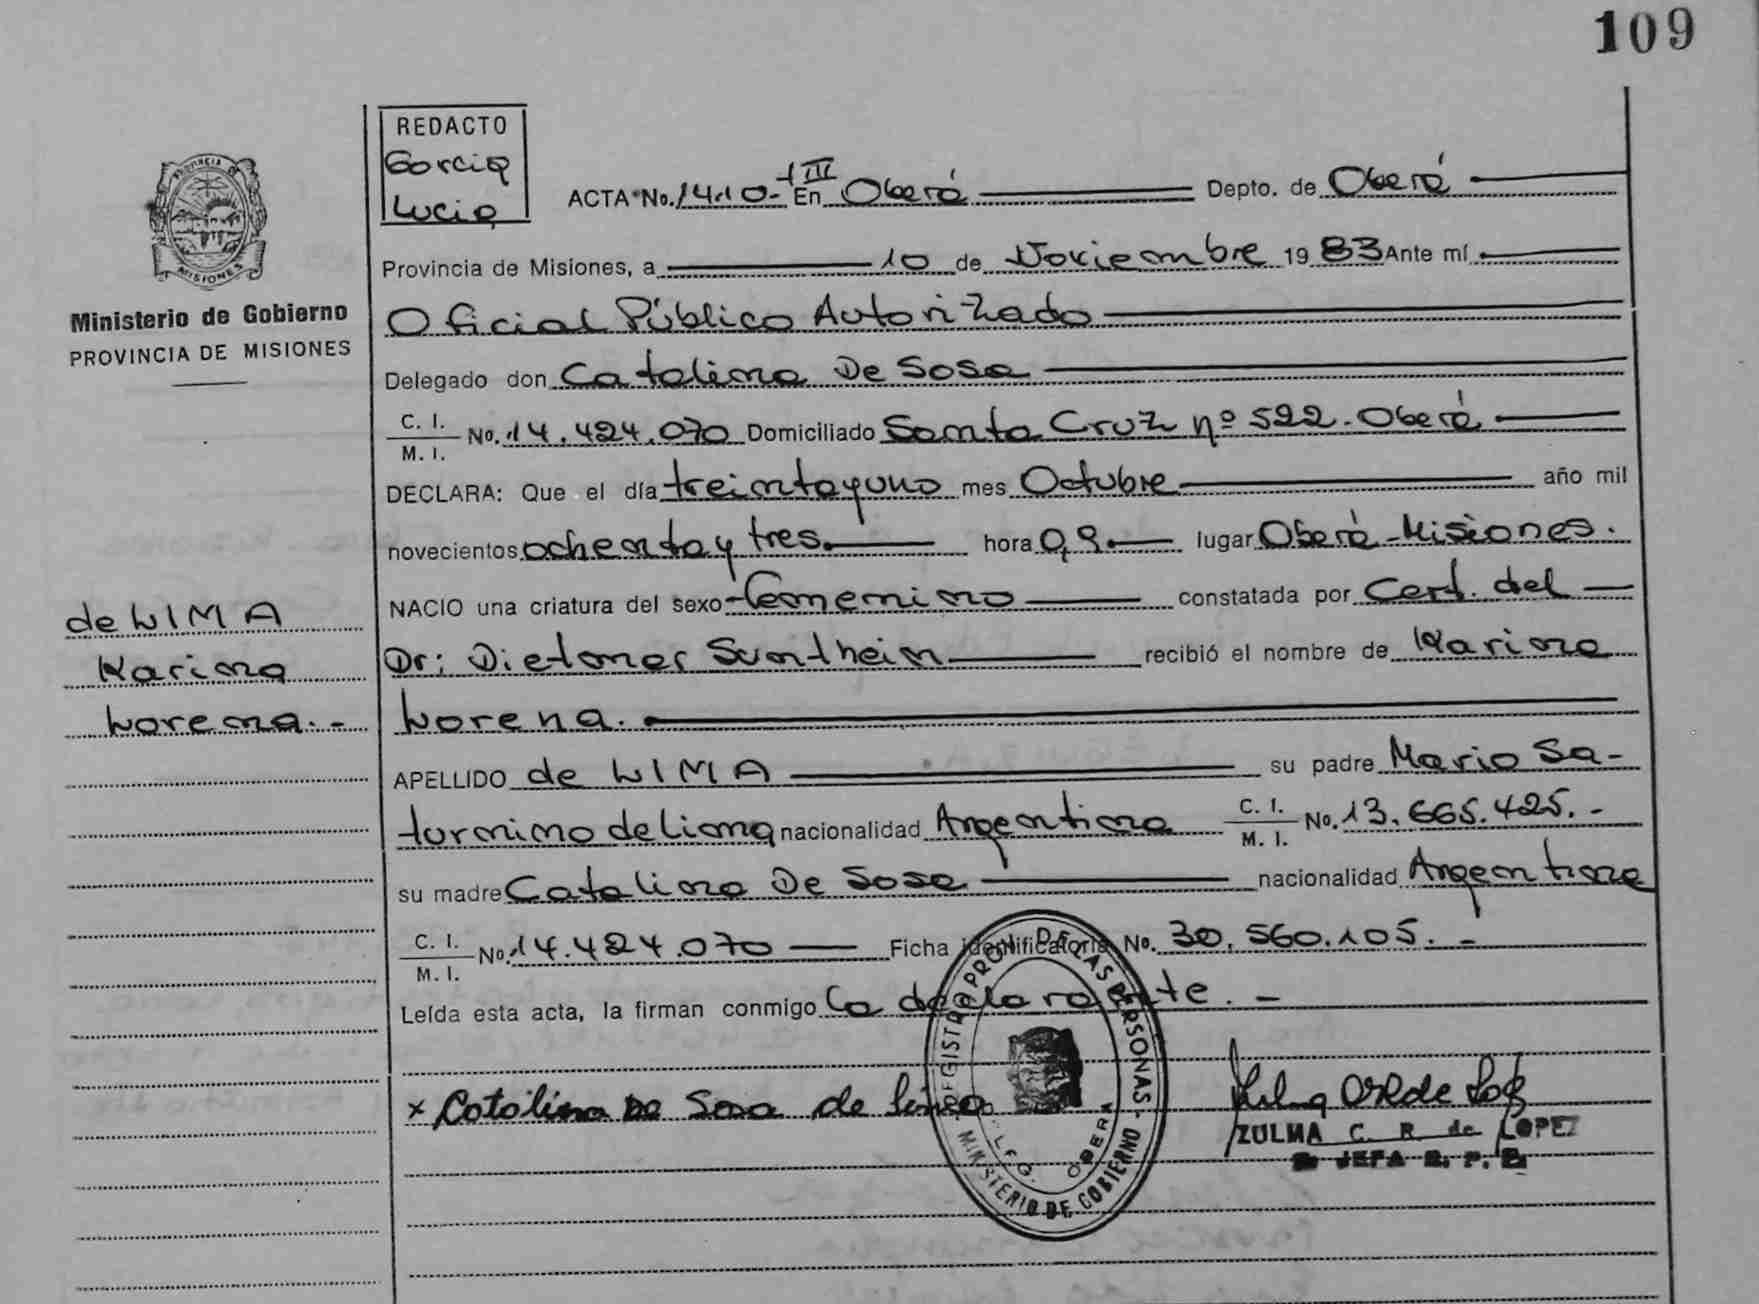 109
REDACTO
Garcia
Lucia
PROVINCIA
MISIONES
Ministerio de Gobierno
PROVINCIA DE MISIONES
ACTA No. 1410-TIII En Oberá Depto. de Oberá
Provincia de Misiones, a 10 de Noviembre 1983 Ante mí
Oficial Público Autorizado
Delegado don Catalina De Sosa
C. I.
M. I. No. 14.424.070 Domiciliado Santa Cruz nº 522. Oberá
DECLARA: Que el día treintayuno mes Octubre año mil
novecientos ochenta y tres. hora 0,9. lugar Oberá-Misiones.
NACIO una criatura del sexo femenino constatada por Cert. del
Dr: Dietmer Suntheim recibió el nombre de Karina
Lorena.
de LIMA
Karina
Lorena.-
APELLIDO de LIMA su padre Mario Sa-
turnino de Lima nacionalidad Argentina C. I. M. I. No. 13.665.425.-
su madre Catalina De Sosa nacionalidad Argentina
C. I. M. I. No. 14.424.070 Ficha identificatoria No. 30.560.105.-
Leída esta acta, la firman conmigo la declarante.-
x Catalina De Sosa de Lima
REGISTRO PROV. DE LAS PERSONAS
MINISTERIO DE GOBIERNO
OBERA
ZULMA C. R. de LOPEZ
JEFA R. P. P.